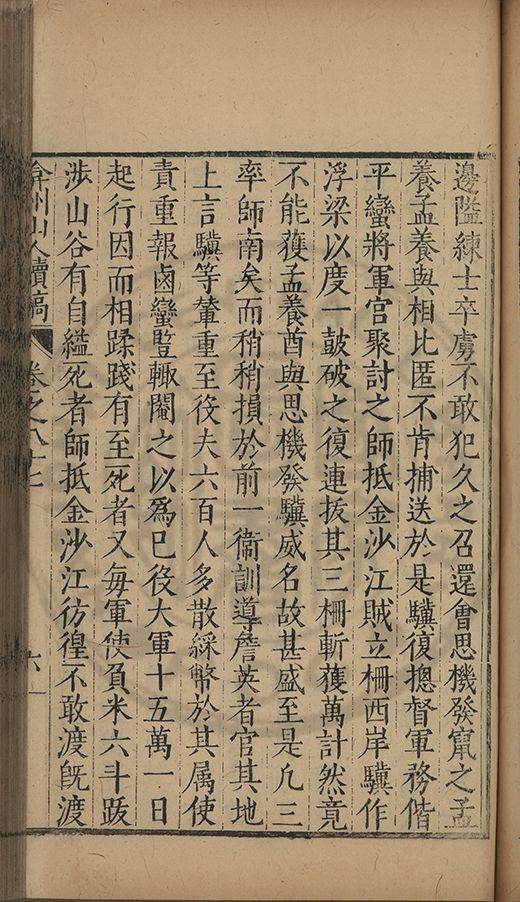 邊隘練士卒虜不敢犯久之召還會思機發竄之孟
養孟養與相比匿不肯捕送於是驥復摠督軍務偕
平蠻將軍官聚討之師抵金沙江賊立柵西岸驥作
浮梁以度一鼓破之復連拔其三柵斬獲萬計然竟
不能獲孟養酋與思機發驥威名故甚盛至是凢三
率師南矣而稍稍損於前一衞訓導詹英者官其地
上言驥等輦重至役夫六百人多散綵幣於其属使
責重報鹵蠻豎輙閹之以爲已役大軍十五萬一日
起行因而相蹂踐有至死者又每軍使負米六斗跋
涉山谷有自縊死者師抵金沙江彷徨不敢渡旣渡
弇州山人續稿 卷之八十七 六